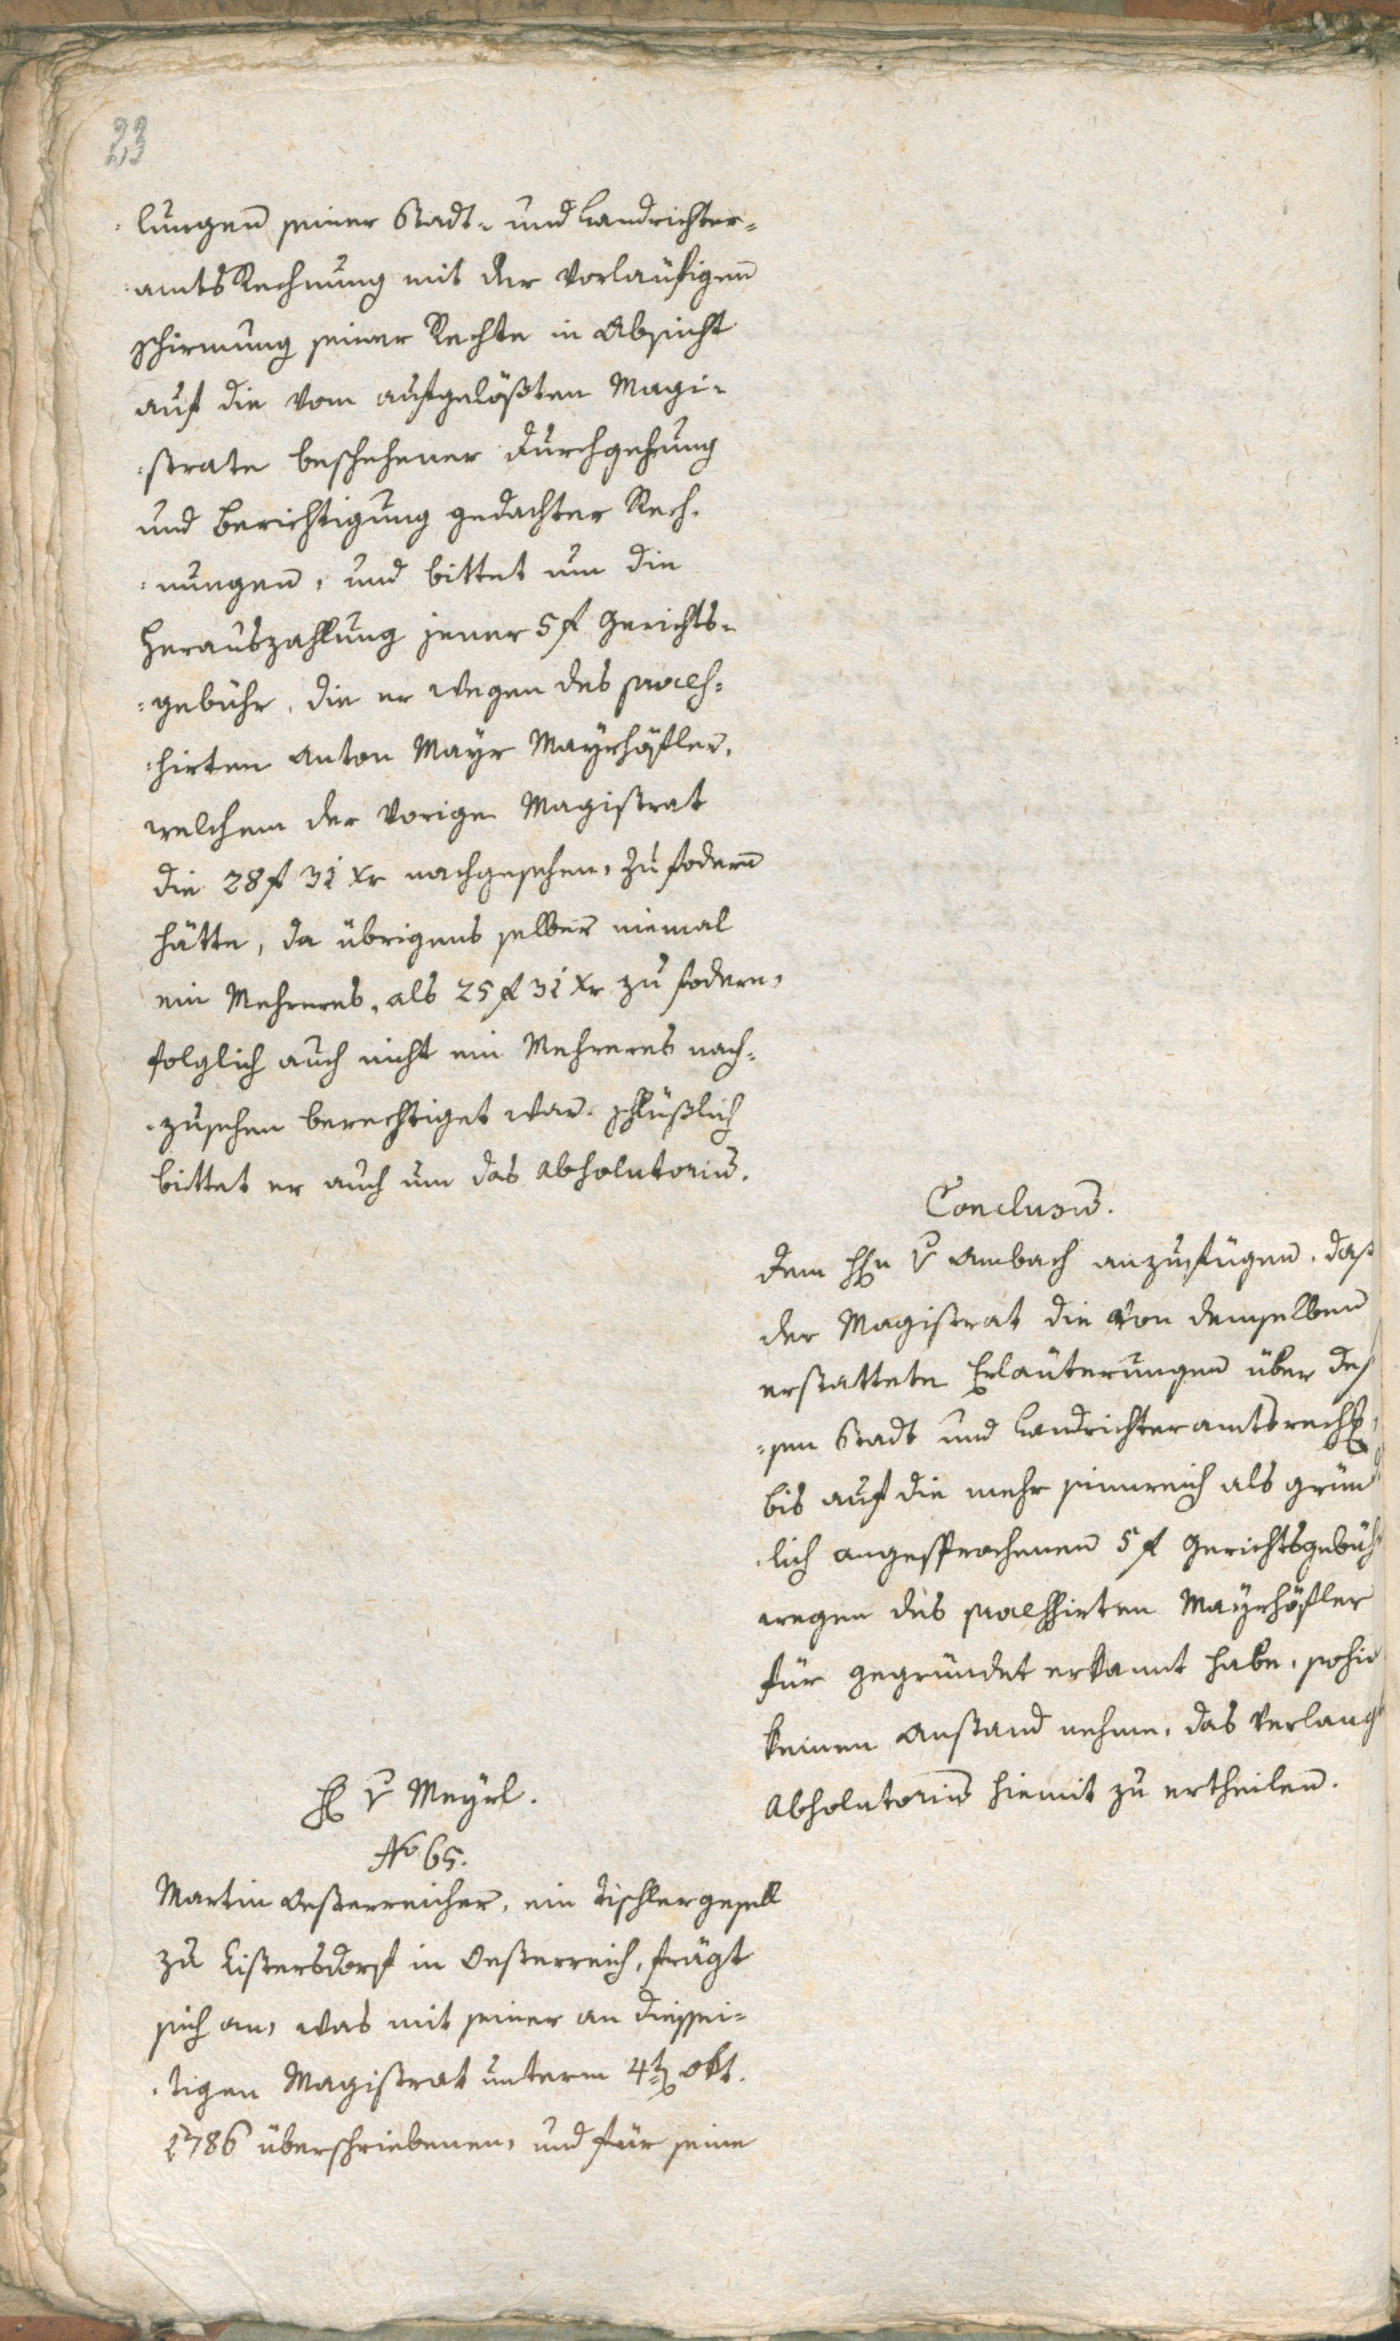 23
lungen seiner Stadt- und Landrichter-
amts Rechnung mit der vorläufigen
schirmung seiner Rechte in Absicht
auf die vom aufgelößten Magi-
strate beschehener Durchgehung
und Berichtigung gedachter Rech-
nungen, und bittet um die
Herauszahlung jener 5 f Gerichts-
gebühr, die er wegen des
hirten Anton Mayr Mayrhöfler,
welchem der vorige Magistrat
die 28 f 31 xr nachgesehen, zu fodern
hätte, da übrigens selber niemal
ein Mehreres, als 25 f 31 xr zu fodern,
folglich auch nicht ein Mehreres nach-
zusehen berechtiget war. schlüßlich
bittet er auch um das Absolutorium.
Conclusum.
Dem Hrn v Ambach anzufügen, daß
der Magistrat die von demselben
erstattete Erläuterungen über des
sen Stadt und Landrichteramtsrech
bis auf die mehr sinnreich als gründ
lich angesprochenen 5 f Gerichtsgebüh
wegen des Mayrhöfler
für gegründet erkannt habe, sohin
keinen Anstand nehme, das verlang
Absolutorium hiemit zu ertheilen.
H v Meyrl.
No 65.
Martin Oesterreicher, ein Tischlergesell
zu Listersdorf in Oesterreich, frägt
sich an, was mit seiner an dießsei-
tigen Magistrat unterm 4t Okt.
1786 überschriebenen, und für seine